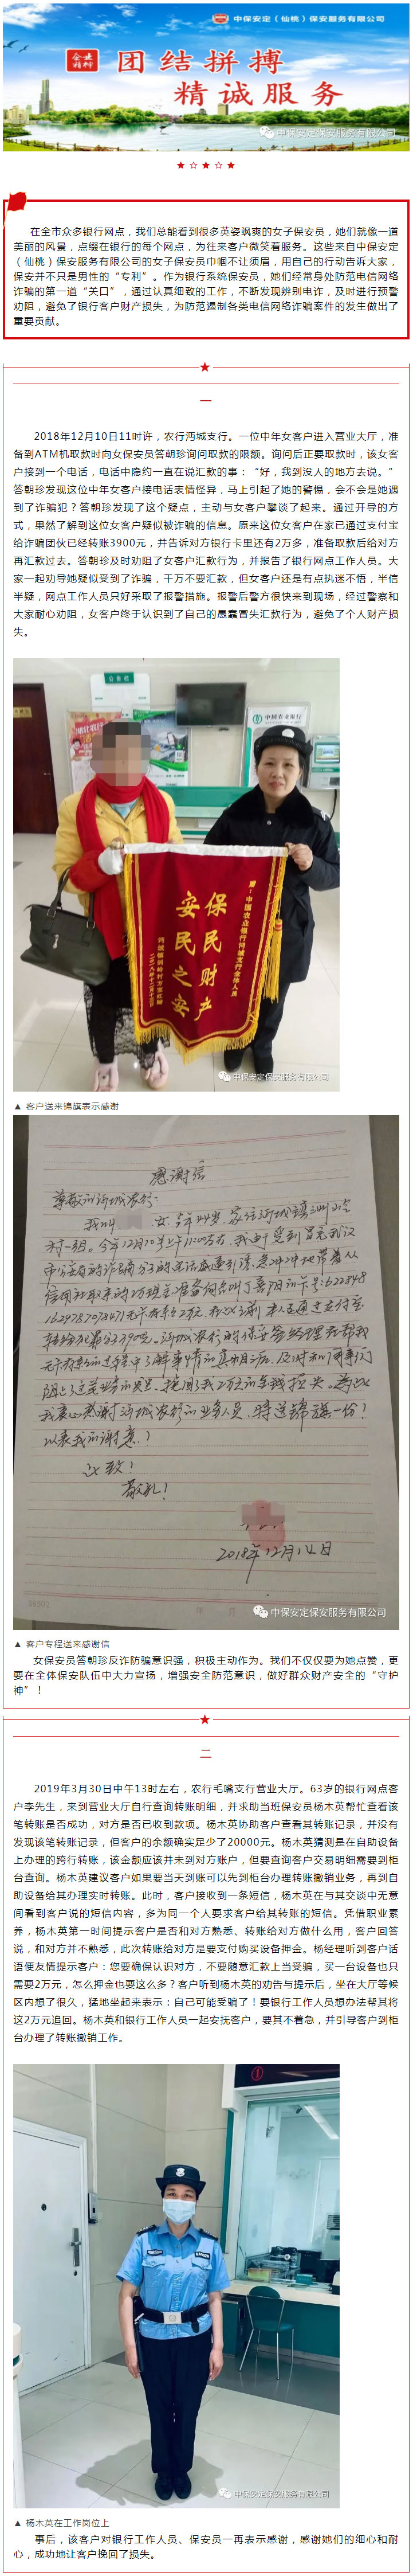 中保安定（仙桃）保安服务有限公司
企业精神
团结拼搏
精诚服务
中保安定保安服务有限公司
在全市众多银行网点，我们总能看到很多英姿飒爽的女子保安员，她们就像一道
美丽的风景，点缀在银行的每个网点，为往来客户微笑着服务。这些来自中保安定
（仙桃）保安服务有限公司的女子保安员巾帼不让须眉，用自己的行动告诉大家，
保安并不只是男性的“专利”。作为银行系统保安员，她们经常身处防范电信网络
诈骗的第一道“关口”，通过认真细致的工作，不断发现辨别电诈，及时进行预警
劝阻，避免了银行客户财产损失，为防范遏制各类电信网络诈骗案件的发生做出了
重要贡献。
一
2018年12月10日11时许，农行沔城支行。一位中年女客户进入营业大厅，准
备到ATM机取款时向女保安员答朝珍询问取款的限额。询问后正要取款时，该女客
户接到一个电话，电话中隐约一直在说汇款的事：“好，我到没人的地方去说。”
答朝珍发现这位中年女客户接电话表情怪异，马上引起了她的警惕，会不会是她遇
到了诈骗犯？答朝珍发现了这个疑点，主动与女客户攀谈了起来。通过开导的方
式，果然了解到这位女客户疑似被诈骗的信息。原来这位女客户在家已通过支付宝
给诈骗团伙已经转账3900元，并告诉对方银行卡里还有2万多，准备取款后给对方
再汇款过去。答朝珍及时劝阻了女客户汇款行为，并报告了银行网点工作人员。大
家一起劝导她疑似受到了诈骗，千万不要汇款，但女客户还是有点执迷不悟，半信
半疑，网点工作人员只好采取了报警措施。报警后警方很快来到现场，经过警察和
大家耐心劝阻，女客户终于认识到了自己的愚蠢冒失汇款行为，避免了个人财产损
失。
中国农业银行
赠：中国农业银行沔城支行全体人员
保民财产
安民之安
中保安定保安服务有限公司
▲ 客户送来锦旗表示感谢
感谢信
尊敬的沔城农行：
2018年12月14日
中保安定保安服务有限公司
▲ 客户专程送来感谢信
女保安员答朝珍反诈防骗意识强，积极主动作为。我们不仅仅要为她点赞，更
要在全体保安队伍中大力宣扬，增强安全防范意识，做好群众财产安全的“守护
神”！
二
2019年3月30日中午13时左右，农行毛嘴支行营业大厅。63岁的银行网点客
户李先生，来到营业大厅自行查询转账明细，并求助当班保安员杨木英帮忙查看该
笔转账是否成功，对方是否已收到款项。杨木英协助客户查看其转账记录，并没有
发现该笔转账记录，但客户的余额确实足少了20000元。杨木英猜测是在自助设备
上办理的跨行转账，该金额应该并未到对方账户，但要查询客户交易明细需要到柜
台查询。杨木英建议客户如果要当天到账可以先到柜台办理转账撤销业务，再到自
助设备给其办理实时转账。此时，客户接收到一条短信，杨木英在与其交谈中无意
间看到客户说的短信内容，多为同一个人要求客户给其转账的短信。凭借职业素
养，杨木英第一时间提示客户是否和对方熟悉、转账给对方做什么用，客户回答
说，和对方并不熟悉，此次转账给对方是要支付购买设备押金。杨经理听到客户话
语便友情提示客户：您要确保认识对方，不要随意汇款上当受骗，买一台设备也只
需要2万元，怎么押金也要这么多？客户听到杨木英的劝告与提示后，坐在大厅等候
区内想了很久，猛地坐起来表示：自己可能受骗了！要银行工作人员想办法帮其将
这2万元追回。杨木英和银行工作人员一起安抚客户，要其不着急，并引导客户到柜
台办理了转账撤销工作。
①
中保安定保安服务有限公司
▲ 杨木英在工作岗位上
事后，该客户对银行工作人员、保安员一再表示感谢，感谢她们的细心和耐
心，成功地让客户挽回了损失。